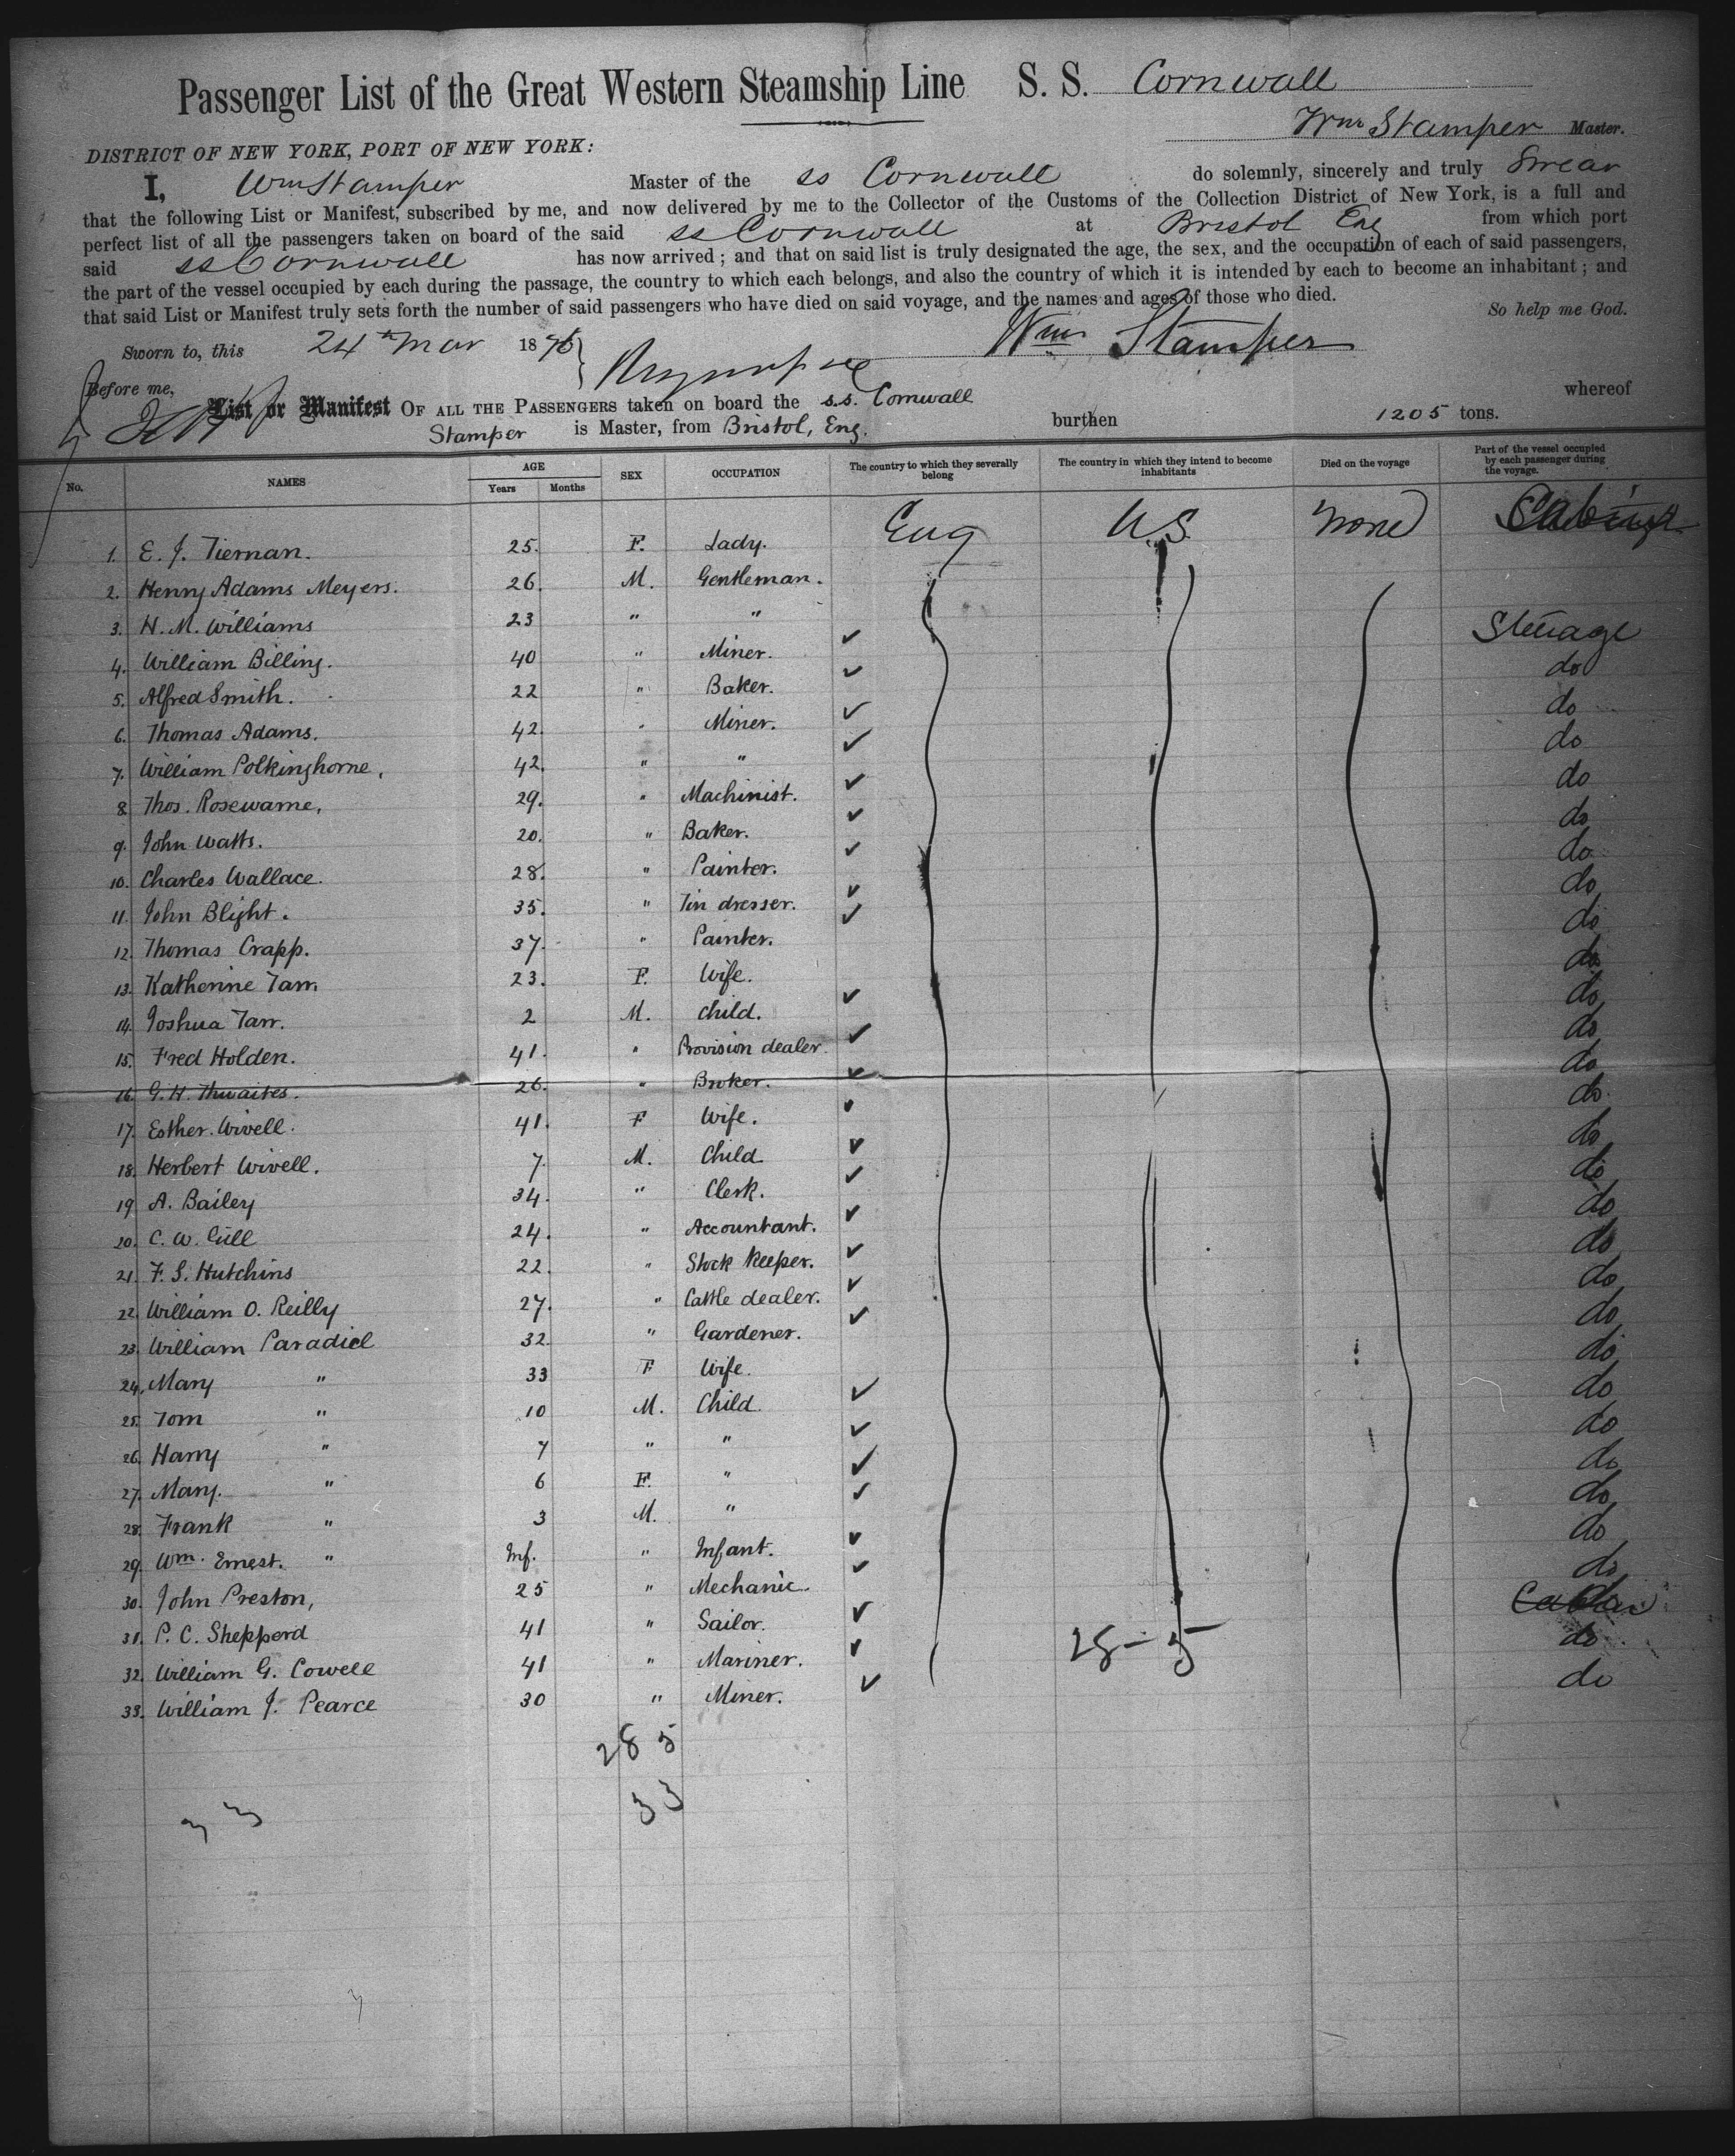 Passenger List of the Great Western Steamship Line S. S. Cornwall
Wm Stamper Master.
DISTRICT OF NEW YORK, PORT OF NEW YORK:
I, Wm Stamper Master of the ss Cornwall do solemnly, sincerely and truly Swear
that the following List or Manifest, subscribed by me, and now delivered by me to the Collector of the Customs of the Collection District of New York, is a full and
perfect list of all the passengers taken on board of the said ss Cornwall at Bristol Eng from which port
said ss Cornwall has now arrived ; and that on said list is truly designated the age, the sex, and the occupation of each of said passengers,
the part of the vessel occupied by each during the passage, the country to which each belongs, and also the country of which it is intended by each to become an inhabitant ; and
that said List or Manifest truly sets forth the number of said passengers who have died on said voyage, and the names and ages of those who died.
So help me God.
Sworn to, this 24th Mar 18
Wm Stamper
Before me,
List or Manifest OF ALL THE PASSENGERS taken on board the s.s. Cornwall whereof
Stamper is Master, from Bristol, Eng. burthen 1205 tons.
No. NAMES AGE Years Months SEX OCCUPATION The country to which they severally belong The country in which they intend to become inhabitants Died on the voyage Part of the vessel occupied by each passenger during the voyage.
1. E. J. Tiernan. 25. F. Lady. Eng U.S. None
2. Henry Adams Meyers. 26. M. Gentleman.
3. H. M. Williams 23 " "
4. William Billing. 40 " Miner. ✓ Steerage
5. Alfred Smith. 22 " Baker. ✓ do
6. Thomas Adams. 42. " Miner. ✓ do
7. William Polkinghorne, 42. " " ✓ do
8. Thos. Rosewarne, 29. " Machinist. ✓ do
9. John Watts. 20. " Baker. ✓ do
10. Charles Wallace. 28. " Painter. ✓ do
11. John Blight. 35. " Tin dresser. ✓ do
12. Thomas Crapp. 37. " Painter. ✓ do
13. Katherine Tarr. 23. F. Wife. do
14. Joshua Tarr. 2 M. Child. ✓ do
15. Fred Holden. 41. " Provision dealer. ✓ do
16. G. H. Thwaites. 26. " Broker. ✓ do
17. Esther. Wivell. 41. F Wife. ✓ do
18. Herbert Wivell. 7. M. Child ✓ do
19. A. Bailey 34. " Clerk. ✓ do
20. C. W. Gill 24. " Accountant. ✓ do
21. F. S. Hutchins 22. " Stock Keeper. ✓ do
22. William O. Reilly 27. " Cattle dealer. ✓ do
23. William Paradice 32. " Gardener. ✓ do
24. Mary " 33 F Wife. do
25. Tom " 10 M. Child. ✓ do
26. Harry " 7 " " ✓ do
27. Mary. " 6 F. " ✓ do
28. Frank " 3 M. " ✓ do
29. Wm. Ernest. " Inf. " Infant. ✓ do
30. John Preston, 25 " Mechanic. ✓ do
31. P. C. Shepperd 41 " Sailor. ✓
32. William G. Cowell 41 " Mariner. ✓ do
33. William J. Pearce 30 " Miner. ✓ do
28 - 5
28 5
33
33